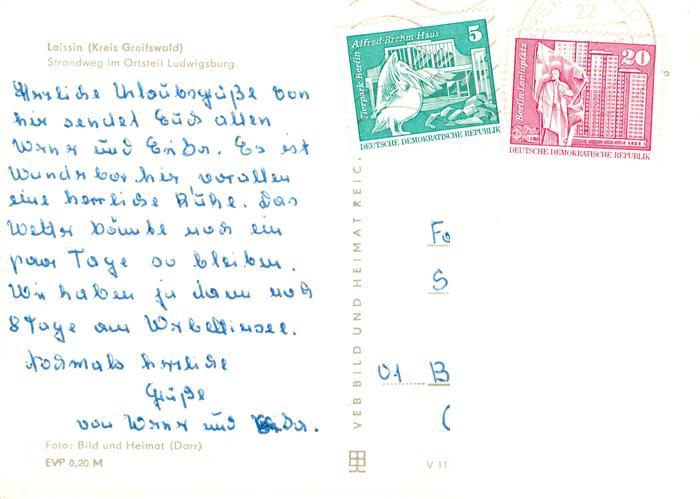 Loissin (Kreis Greifswald)
Strandweg im Ortsteil Ludwigsburg
Herrliche Urlaubsgrüße von
hir sendet Euch allen
Werner und Erika. Es ist
Wunderbar hir vorallen
eine herrliche Ruhe. Das
Wetter könnte noch ein
paar Tage so bleiben.
Wir haben ja dann noch
8 Tage am Werbellinsee.
Nochmals herrliche
Grüße
von Werner und
Foto: Bild und Heimat (Darr)
EVP 0,20 M
VEB BILD UND HEIMAT REIC
V 11
Tierpark Berlin
Alfred-Brehm-Haus
5
DEUTSCHE DEMOKRATISCHE REPUBLIK
22
Berlin, Leninplatz
20
DEUTSCHE DEMOKRATISCHE REPUBLIK
Fo
S
01 B